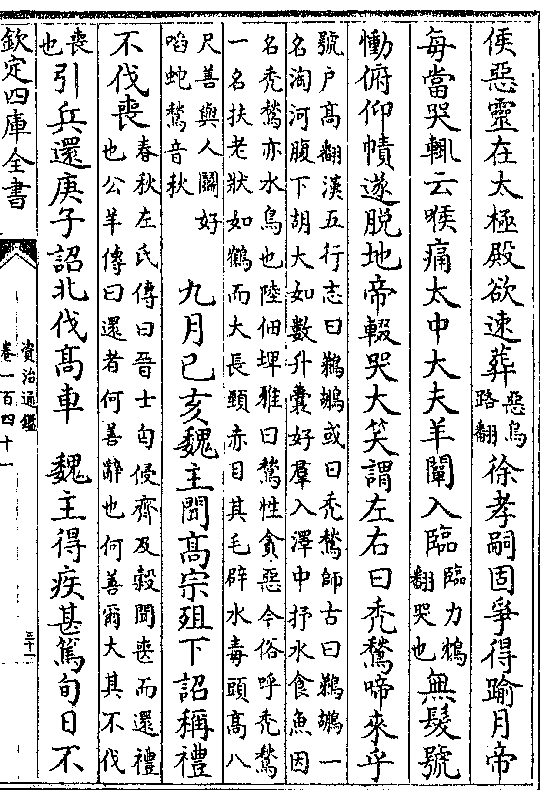 侯惡靈在太極殿欲速葬惡烏路翻徐孝嗣固爭得踰月帝
每當哭輒云喉痛太中大夫羊闡入臨臨力鴆翻哭也無髮號
慟俯仰幘遂脫地帝輟哭大笑謂左右曰禿鶖啼來乎
號户髙翻漢五行志曰鵜鶘或曰禿鶖師古曰鵜鶘一
名淘河腹下胡大如數升囊好羣入澤中抒水食魚因
名禿鶖亦水鳥也陸佃埤雅曰鶖性貪惡今俗呼禿鶖
一名扶老狀如鶴而大長頸赤目其毛辟水毒頭髙八
尺善與人鬭好㗖蛇鶖音秋 九月己亥魏主聞髙宗殂下詔稱禮
不伐喪春秋左氏傳曰晉士匄侵齊及穀聞喪而還禮也公羊傳曰還者何善辭也何善爾大其不伐
喪也引兵還庚子詔北伐髙車 魏主得疾甚篤旬日不
欽定四庫全書
資治通鑑
卷一百四十一
三十二